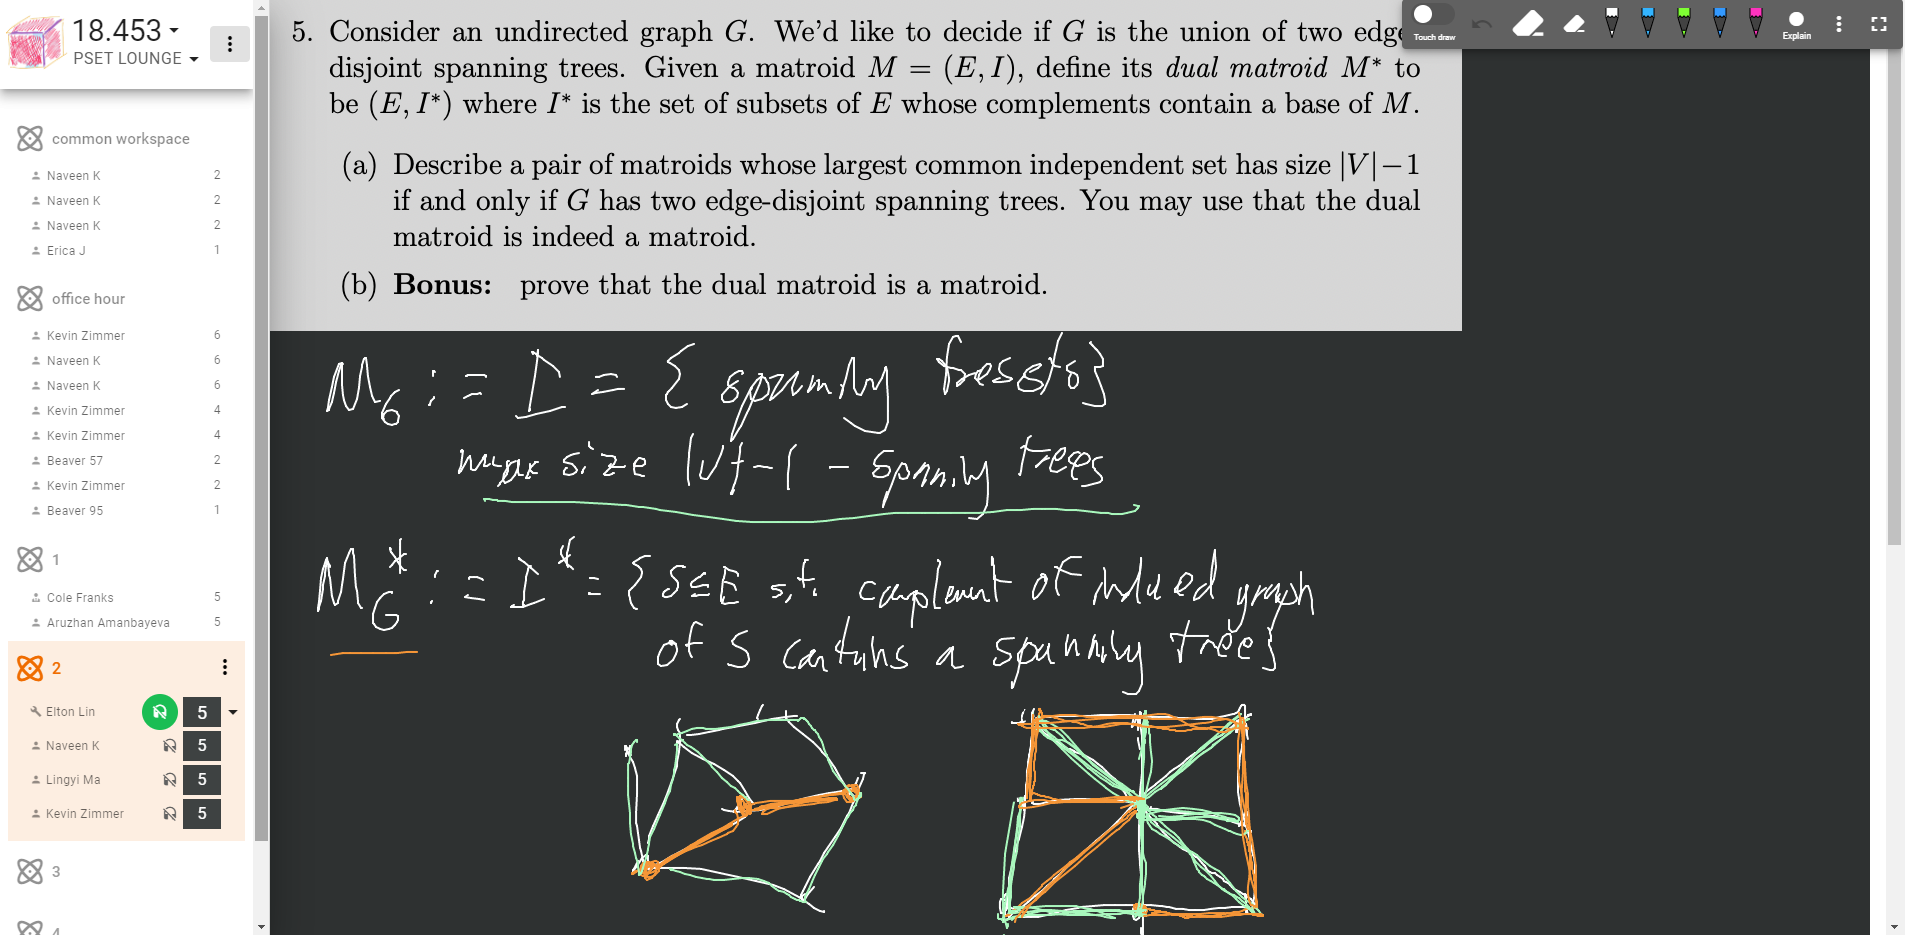 18.453
PSET LOUNGE
common workspace
Naveen K 2
Naveen K 2
Naveen K 2
Erica J 1
office hour
Kevin Zimmer 6
Naveen K 6
Naveen K 6
Kevin Zimmer 4
Kevin Zimmer 4
Beaver 57 2
Kevin Zimmer 2
Beaver 95 1
1
Cole Franks 5
Aruzhan Amanbayeva 5
2
Elton Lin 5
Naveen K 5
Lingyi Ma 5
Kevin Zimmer 5
3
4
Touch draw
Explain
5. Consider an undirected graph G. We'd like to decide if G is the union of two edge
disjoint spanning trees. Given a matroid M = (E, I), define its dual matroid M* to
be (E, I*) where I* is the set of subsets of E whose complements contain a base of M.
(a) Describe a pair of matroids whose largest common independent set has size |V|−1
if and only if G has two edge-disjoint spanning trees. You may use that the dual
matroid is indeed a matroid.
(b) Bonus: prove that the dual matroid is a matroid.
M_G := I = {
max size |V|-1 - spanning trees
M_G* := I* = { S ⊆ E s.t. complement of induced graph
of S contains a spanning tree}